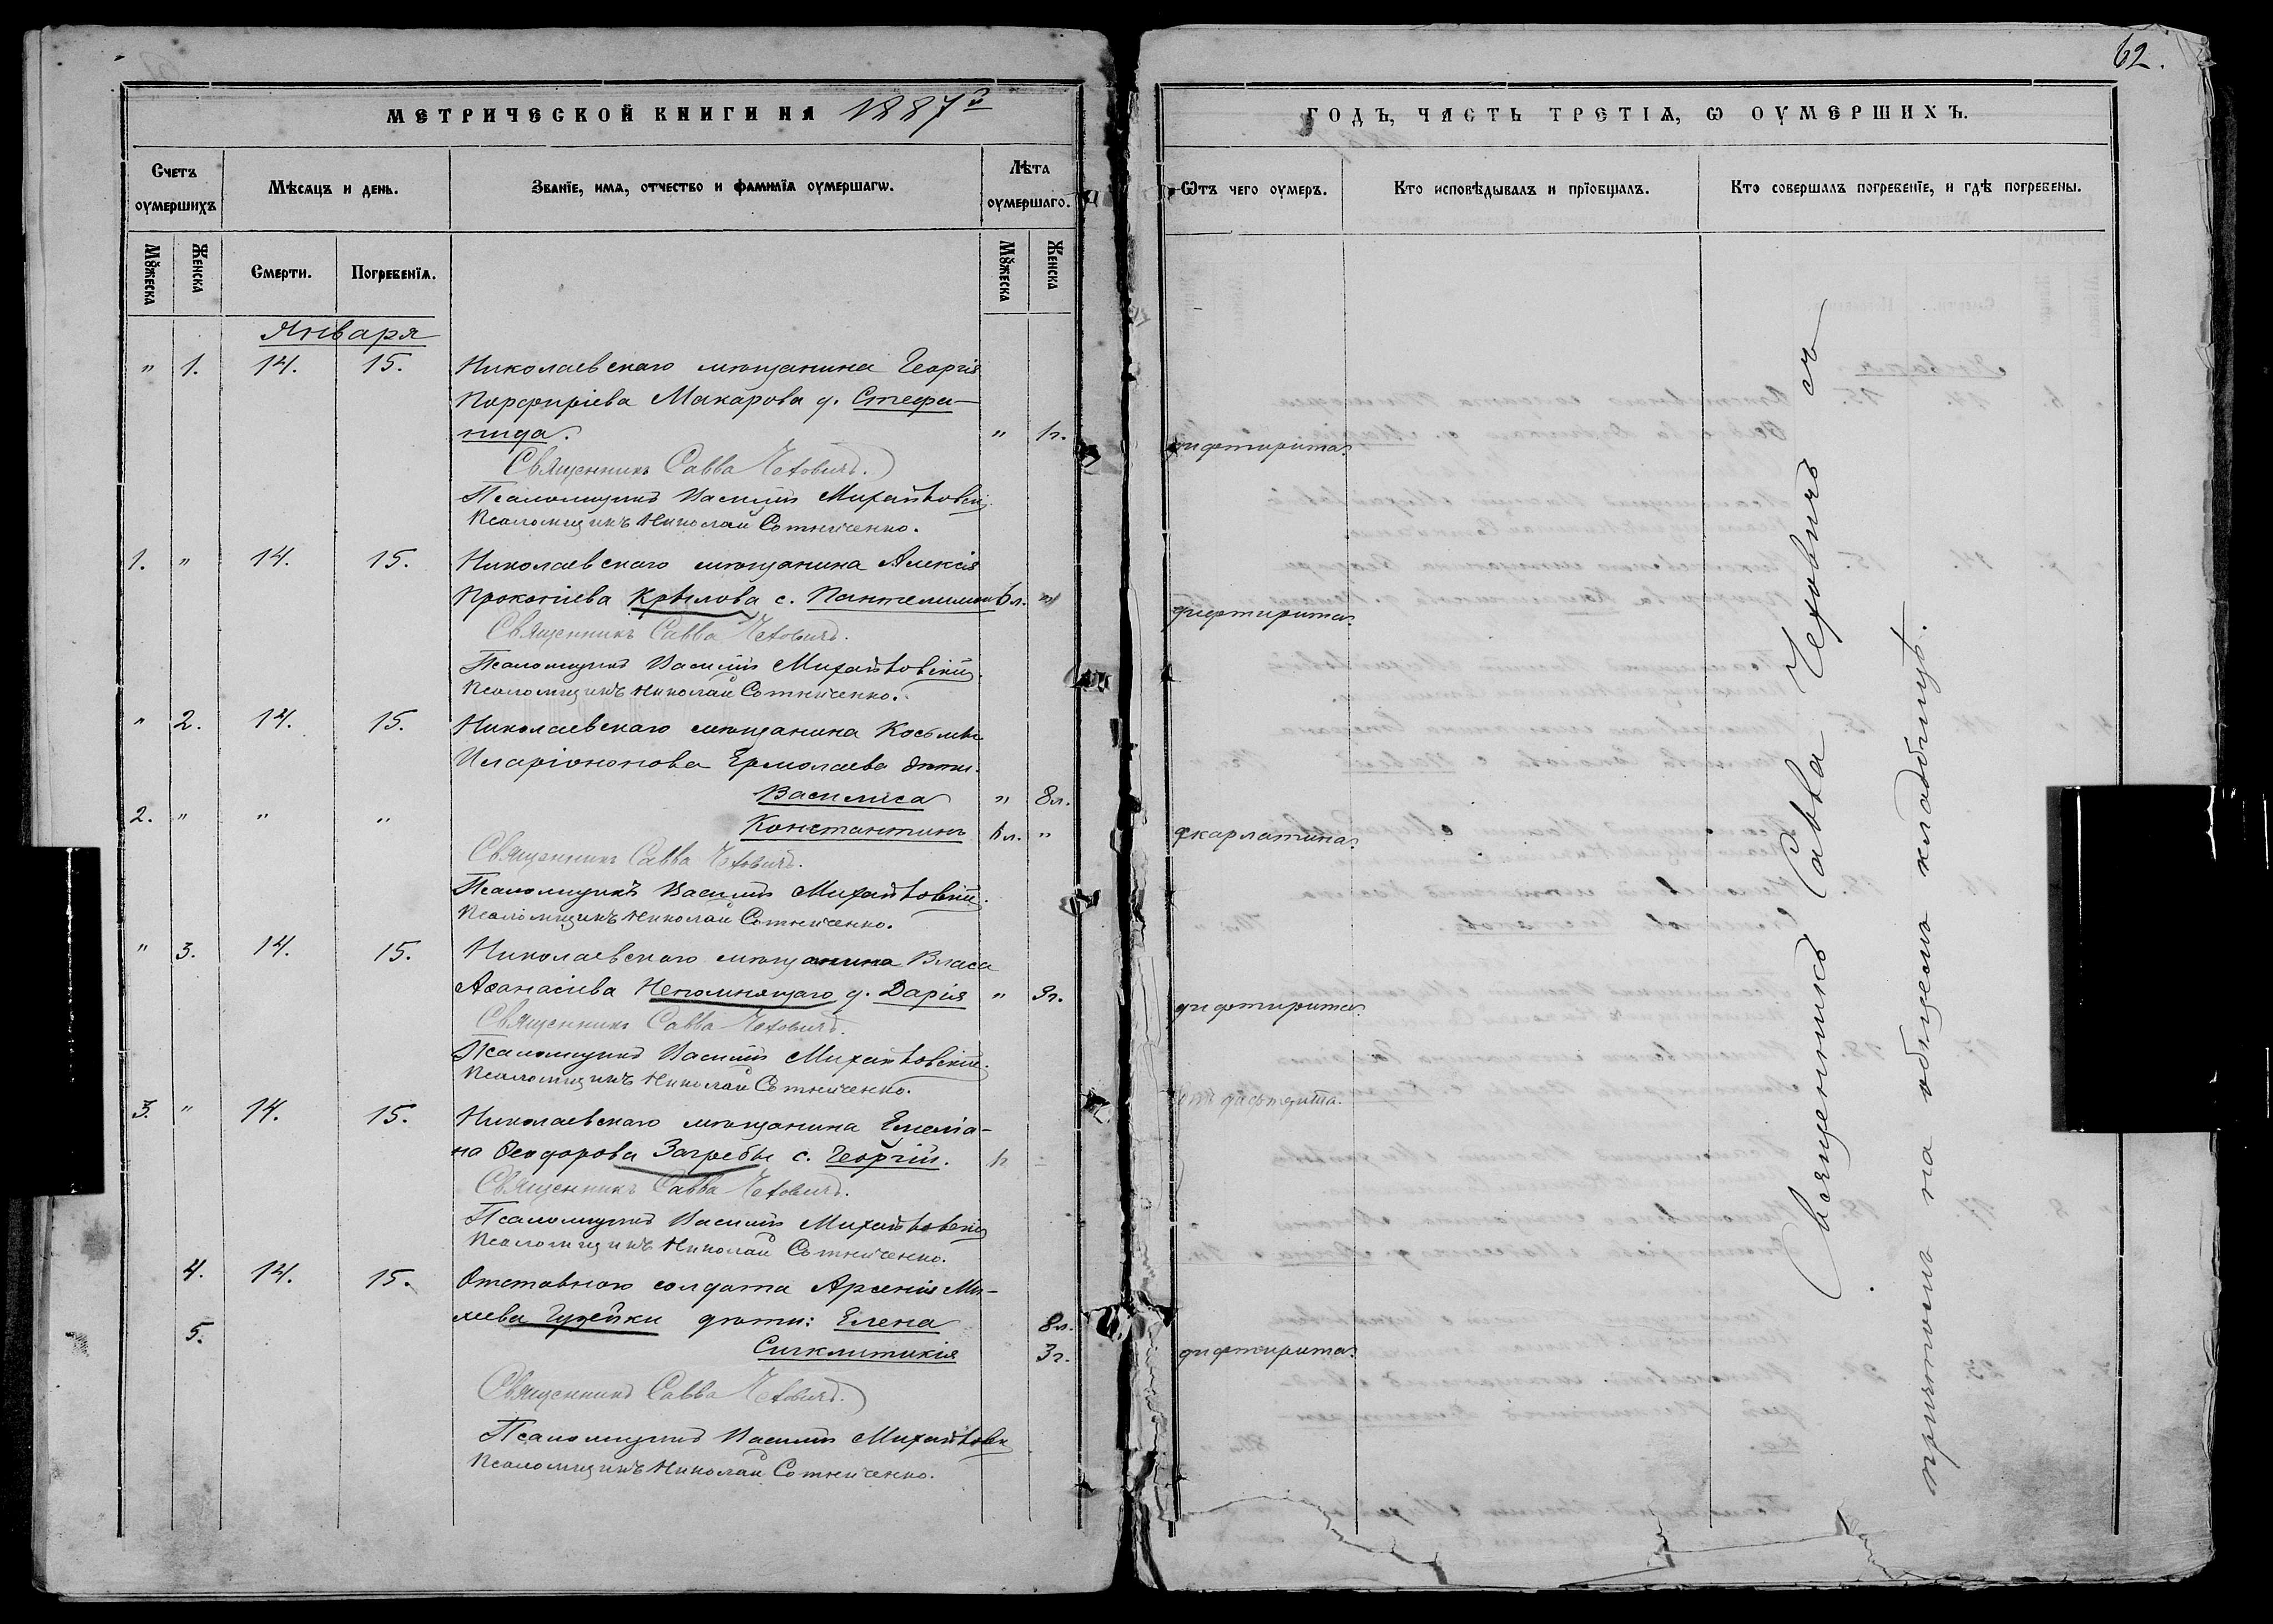 МЕТРИЧЕСКОЙ КНИГИ НА 1887й
Счетъ оумершихъ
Мѣсяцъ и день.
Званіе, имя, отчество и фамилія оумершагѡ.
Лѣта оумершаго.
Мꙋжеска
Женска
Смерти.
Погребенія.
Мꙋжеска
Женска
Января
" 1. 14. 15. Николаевскаго мѣщанина Георгія
Порфиріева Макарова д. Стефа-
нида. " 1г.
Священникъ Савва Чеховичъ.
Псаломщикъ Василій Михайловскій
Псаломщикъ Николай Сотниченко.
1. " 14. 15. Николаевскаго мѣщанина Алексія
Прокопіева Крылова с. Пантелимонъ 6л. "
Священникъ Савва Чеховичъ.
Псаломщикъ Василій Михайловскій
Псаломщикъ Николай Сотниченко.
" 2. 14. 15. Николаевскаго мѣщанина Косьмы
Иларіонова Ермолаева дѣти.
Василиса " 8л.
2. " " " Константинъ 6л. "
Священникъ Савва Чеховичъ.
Псаломщикъ Василій Михайловскій
Псаломщикъ Николай Сотниченко.
" 3. 14. 15. Николаевскаго мѣщанина Власа
Аѳанасіева Непомнящаго д. Дарія " 9г.
Священникъ Савва Чеховичъ.
Псаломщикъ Василій Михайловскій
Псаломщикъ Николай Сотниченко.
3. " 14. 15. Николаевскаго мѣщанина Емеліа-
на Ѳеодорова Загребы с. Георгій.
Священникъ Савва Чеховичъ.
Псаломщикъ Василій Михайловскій
Псаломщикъ Николай Сотниченко.
4. 14. 15. Отставного солдата Арсенія Ми-
хеева дѣти: Елена 8л.
5. Сигклитикія 3г.
Священникъ Савва Чеховичъ.
Псаломщикъ Василій Михайловск
Псаломщикъ Николай Сотниченко.
62.
ГОДЪ, ЧАСТЬ ТРЕТІЯ, Ѡ ОУМЕРШИХЪ.
Ѿтъ чего оумеръ.
Кто исповѣдывалъ и пріобщалъ.
Кто совершалъ погребеніе, и гдѣ погребены.
дифтирита
дифтирита
скарлатина
дифтирита
отъ дифтерита.
дифтирита
Священникъ Савва Чеховичъ съ
причтомъ на общемъ кладбищѣ.